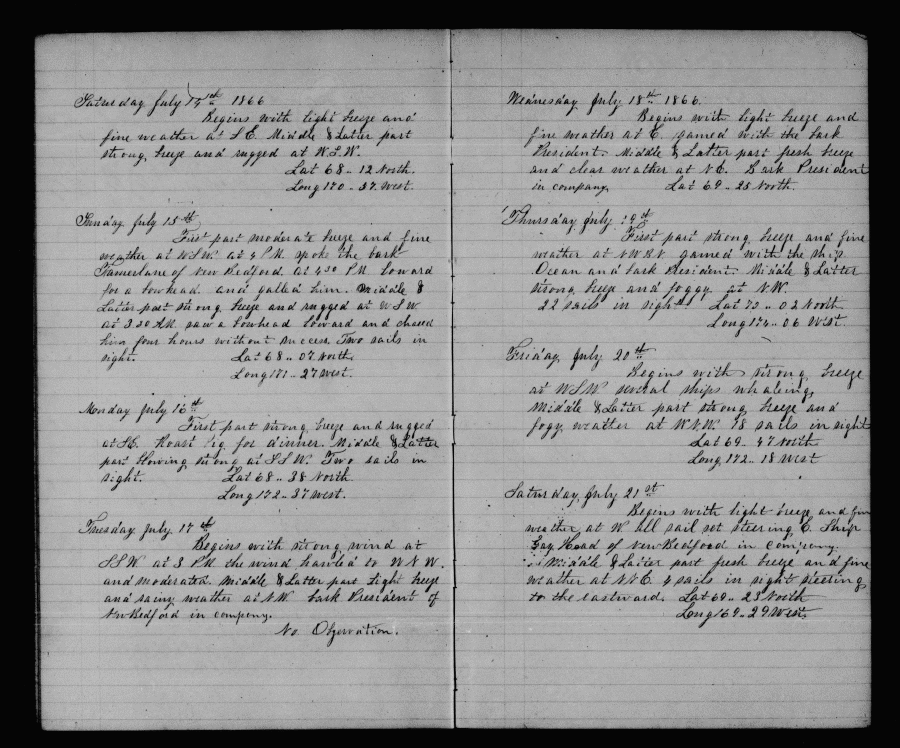 Saturday July 14th 1866
Begins with light breeze and
fine weather at S E. Middle & Latter part
strong breeze and rugged at W.S.W.
Lat 68 .. 12 North.
Long 170 .. 37 West.
Sunday July 15th
First part moderate breeze and fine
weather at W.S.W. at 4 P.M. spoke the bark
Tamerlane of New Bedford. at 4 30 P.M. lowerd
for a bowhead and gallied him. Middle &
Latter part strong breeze and rugged at W S W
at 3.30 A.M. saw a bowhead lowerd and chased
him four hours without success. Two sails in
sight.
Lat 68 .. 07 North.
Long 171 .. 27 West.
Monday July 16th
First part strong breeze and rugged
at S.E. Roast Pig for dinner. Middle & Latter
part blowing strong at S S W. Two sails in
sight.
Lat 68 .. 38 North
Long 172 .. 37 West.
Tuesday July 17th
Begins with strong wind at
S.S.W. at 3 P.M. the wind hauled to W N W.
and moderated. Middle & Latter part light breeze
and rainy weather at N.W. bark President of
Nw Bedford in company.
No Observation.
Wednesday July 18th 1866.
Begins with light breeze and
fine weather at E. gamed with the bark
President. Middle & Latter part fresh breeze
and clear weather at N E. Bark President
in company. Lat 69 .. 25 North.
Thursday July 19th
First part strong breeze and fine
weather at N W B N gamed with the ship
Ocean and bark President. Middle & Latter
strong breeze and foggy at N.W.
22 sails in sight. Lat 70 .. 02 North
Long 174 .. 06 West.
Friday July 20th
Begins with strong breeze
at W.S.W. several ships whaleing,
Middle & Latter part strong breeze and
fogy weather at W.N.W. 18 sails in sight
Lat 69 .. 47 North
Long 172 .. 18 West
Saturday July 21st
Begins with light breeze and fine
weather at W all sail set steering E. Ship
Gay Head of New Bedford in company.
Middle & Latter part fresh breeze and fine
weather at N N E. 4 sails in sight steering
to the eastward. Lat 69 .. 23 North
Long 169 .. 29 West.